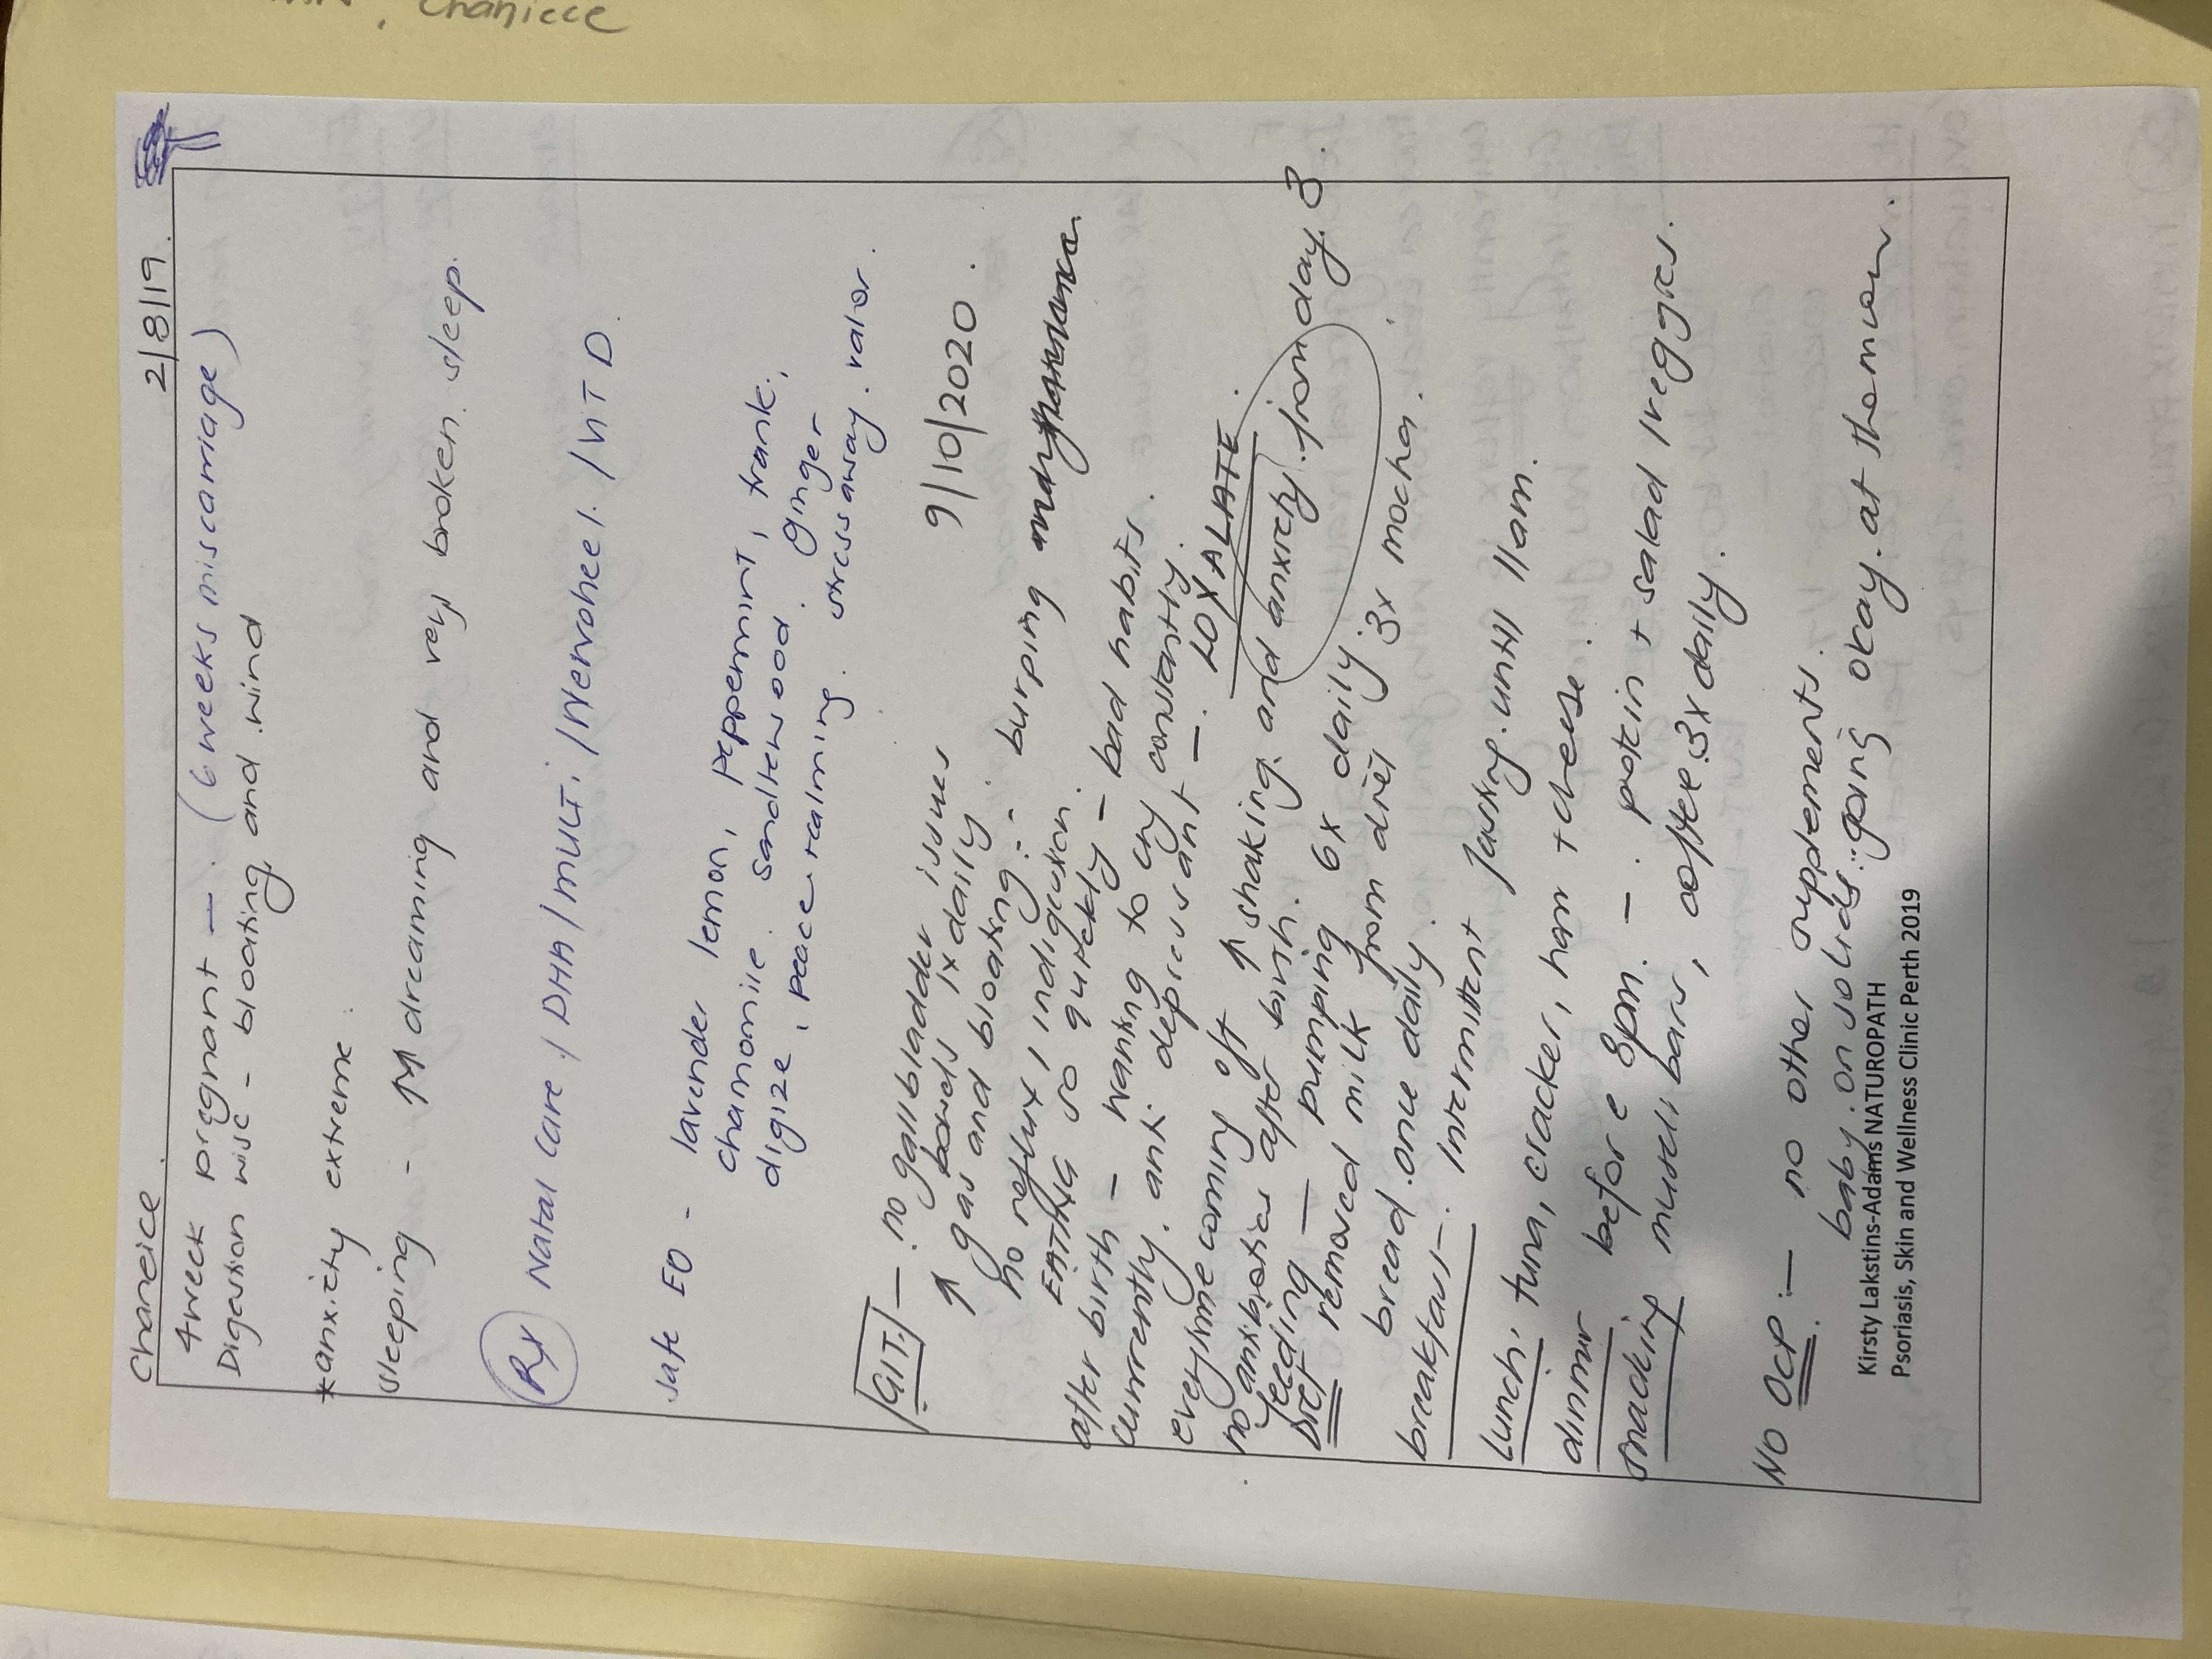 Chaniece
Chaneice 2/8/19.
4 week pregnant - . (6 weeks miscarriage)
Digestion wise - bloating and wind
*anxiety extreme.
sleeping - ↑↑ dreaming and very broken sleep.
Rx Natal Care / DHA / MULTI / Nervoheel. / VIT D.
Safe EO - lavender lemon, peppermint, frank.,
chamomile. sandlewood. ginger
digize, peace + calming. stress away. valor.
9/10/2020.
GIT. - . no gallbladder issues
bowels 1x daily
↑ gas and bloating. - burping
no reflux / indigestion.
EATING so quickly - bad habits.
after birth - wanting to cry constantly.
currently. anti depressant - . LOXALATE.
everytime coming off ↑ shaking. and anxiety. from day 3.
. no antibiotics after birth.
feeding - pumping 6x daily.
DIET removed milk from diet 3x mocha.
bread. once daily.
breakfast - . Intermittent fasting. until 11am.
Lunch: tuna, cracker, ham + cheese.
dinner before 8pm. - . protein + salad / veggies.
snacking muesli bars, coffee. 3x daily.
NO OCP. - no other supplements.
baby. on solids. : going okay. at the mom.
Kirsty Lakstins-Adams NATUROPATH
Psoriasis, Skin and Wellness Clinic Perth 2019